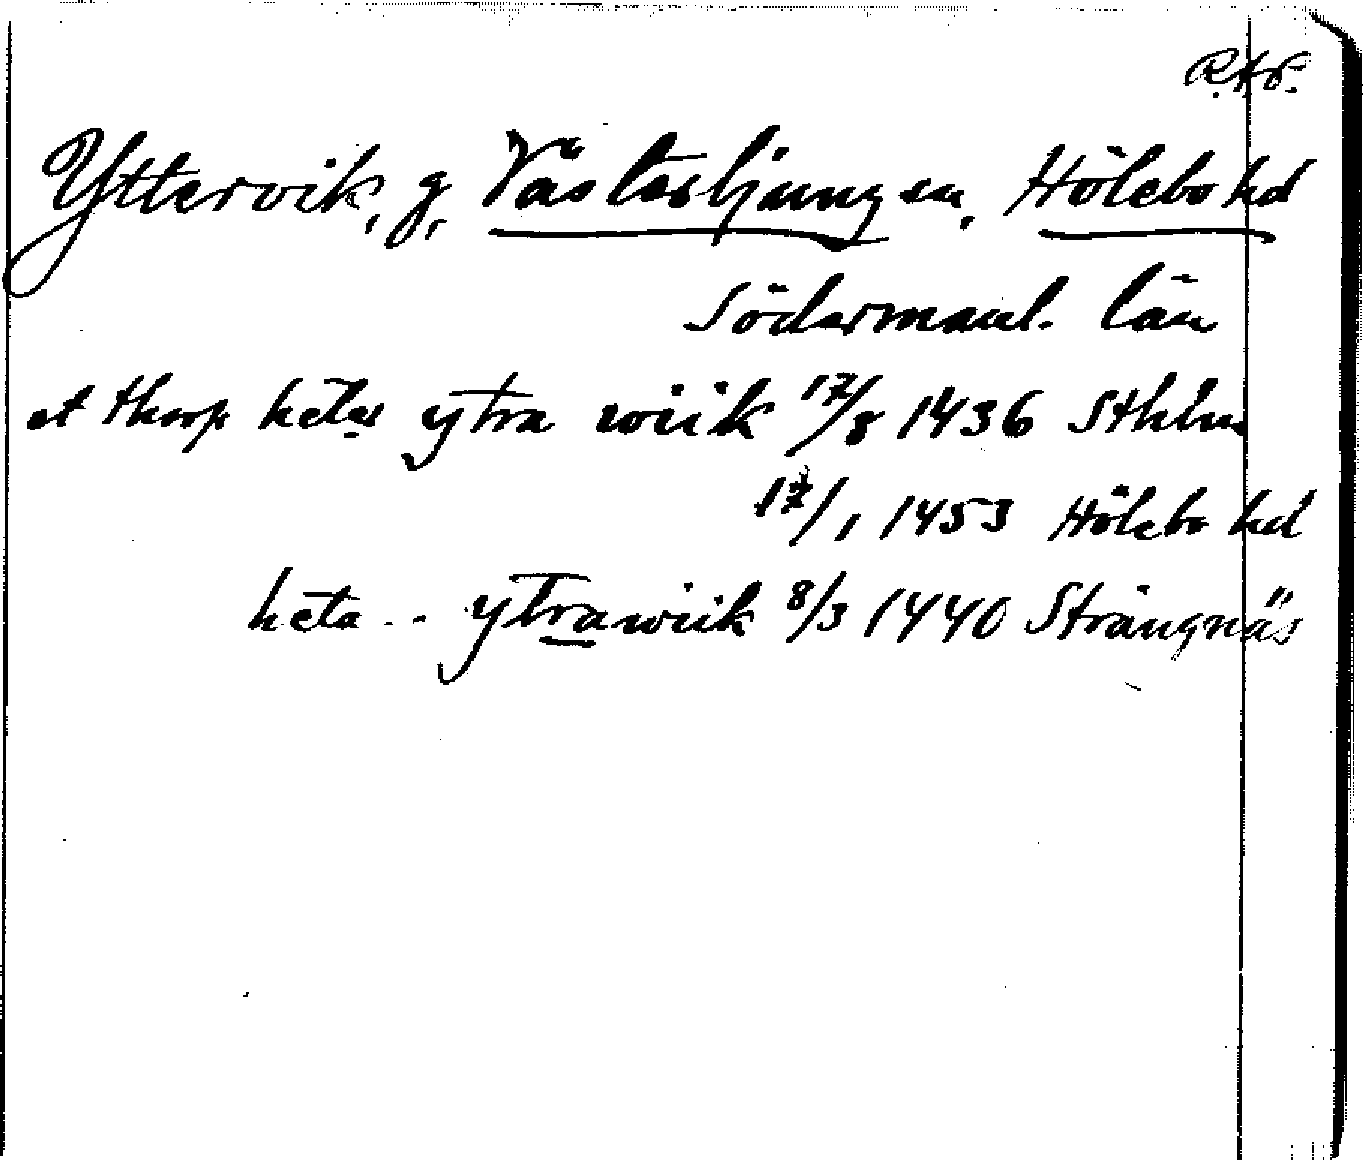 R.A.P.
Yttervik, g, Västerljung sn, Hölebo hd
Södermanl. län
et thorp heter ytra wiik 17/8 1436 Sthlm
17/1 1453 Hölebo hd
heta .. ytrawiik 8/3 1440 Strängnäs